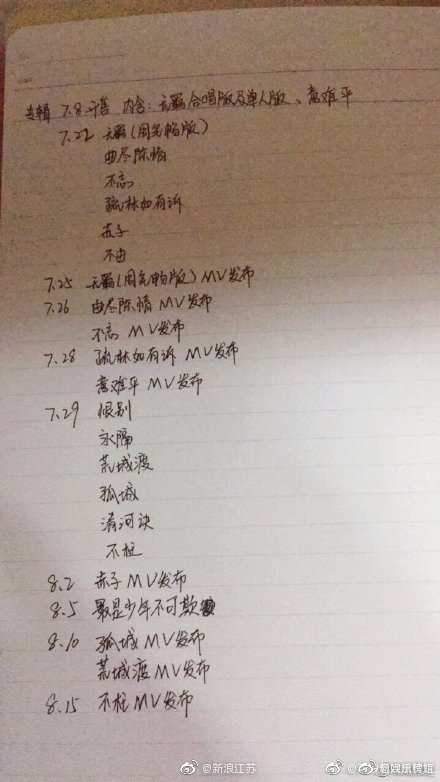 专辑 7.8 开售 内含：无羁合唱版及单人版、意难平
7.22 无羁（周笔畅版）
曲尽陈情
不忘
疏林如有诉
赤子
不由
7.25 无羁（周笔畅版）MV发布
7.26 曲尽陈情 MV发布
不忘 MV发布
7.28 疏林如有诉 MV发布
意难平 MV发布
7.29 恨别
永隔
荒城渡
孤城
清河诀
不枉
8.2 赤子 MV发布
8.5 最是少年不可欺
8.10 孤城 MV发布
荒城渡 MV发布
8.15 不枉 MV发布
@新浪江苏